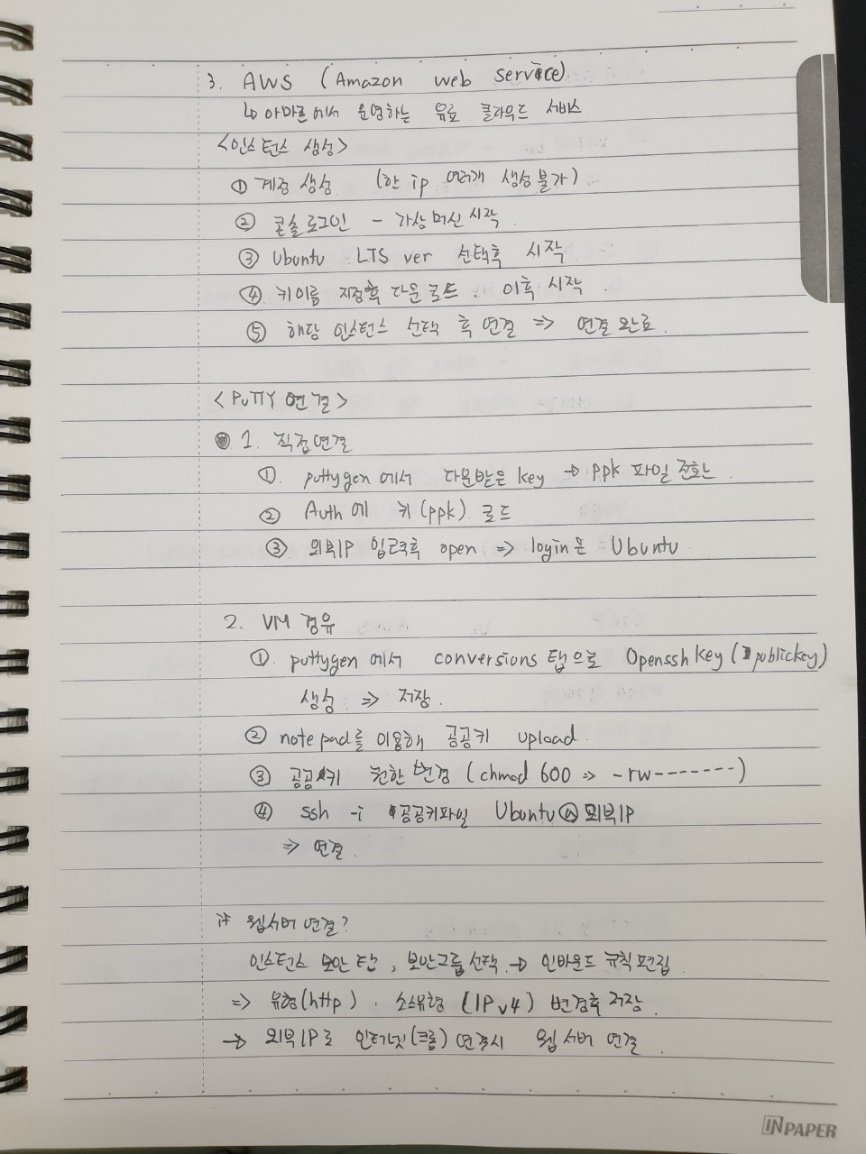 3. AWS (Amazon web service)
↳ 아마존에서 운영하는 유료 클라우드 서비스
<인스턴스 생성>
① 계정 생성 (한 ip 여러개 생성불가)
② 콘솔 로그인 - 가상머신 시작.
③ Ubuntu LTS ver 선택후 시작
④ 키이름 지정후 다운로드. 이후 시작.
⑤ 해당 인스턴스 선택 후 연결 => 연결 완료.
<PuTTY 연결>
1. 직접연결
①. puttygen에서 다운받은 key → ppk 파일 전환.
② Auth에 키(ppk) 로드
③ 외부IP 입력후 open => login은 : Ubuntu.
2. VM 경유
①. puttygen에서 conversions 탭으로 Openssh key (publickey)
생성 => 저장.
② notepad를 이용해 공공키 upload
③ 공공키 권한 변경 (chmod 600 => -rw-------)
④ ssh -i 공공키파일 Ubuntu@외부IP
=> 연결.
※ 웹서버 연결?
인스턴스 보안 탭, 보안그룹 선택. → 인바운드 규칙 편집.
=> 유형(http). 소스유형 (IPv4) 변경후 저장.
→ 외부IP로 인터넷(크롬) 연결시 웹 서버 연결.
INPAPER